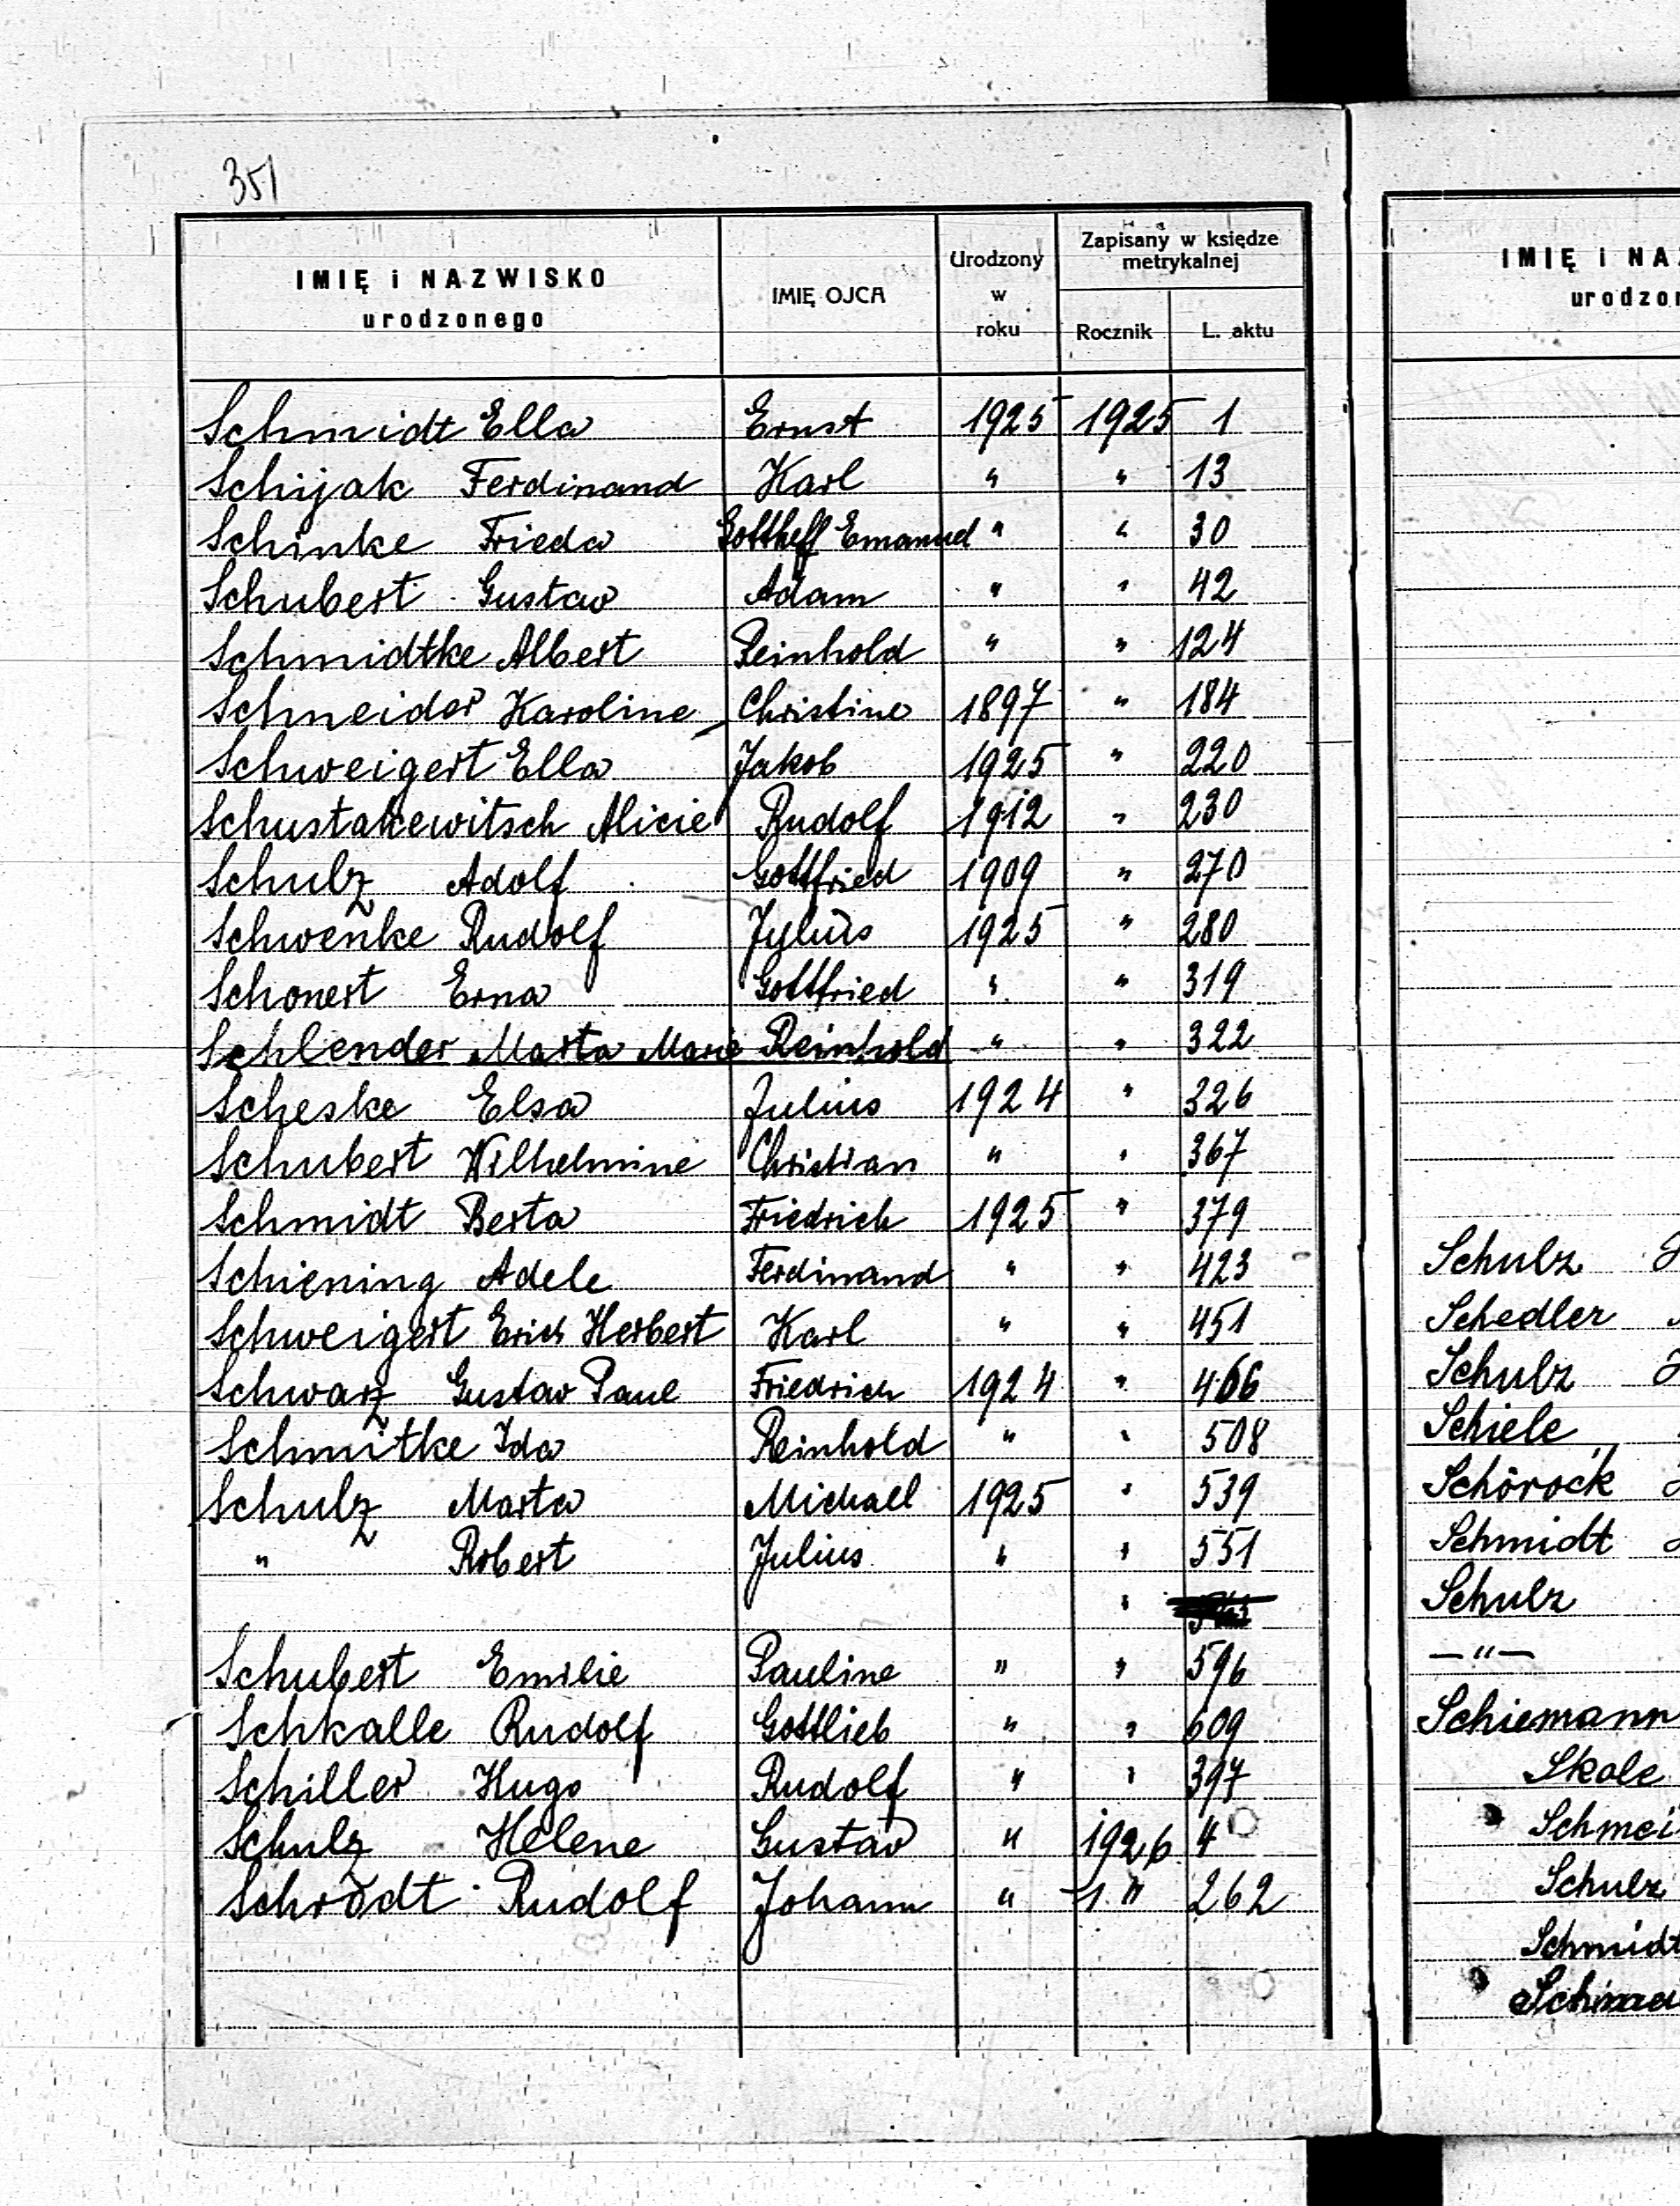 351
IMIĘ i NAZWISKO
urodzonego
IMIĘ OJCA
Urodzony
w
roku
Zapisany w księdze
metrykalnej
Rocznik
L. aktu
Schmidt Ella Ernst 1925 1925 1
Schijak Ferdinand Karl " " 13
Schinke Frieda Gotthelf Emanuel " " 30
Schubert Gustav Adam " " 42
Schmidtke Albert Reinhold " " 124
Schneider Karoline Christine 1897 " 184
Schweigert Ella Jakob 1925 " 220
Schustakewitsch Alicie Rudolf 1912 " 230
Schulz Adolf Gottfried 1909 " 270
Schwenke Rudolf Jylius 1925 " 280
Schonert Erna Gottfried " " 319
Schlender Marta Marie Reinhold " " 322
Scheske Elsa Julius 1924 " 326
Schubert Wilhelmine Christian " " 367
Schmidt Berta Friedrich 1925 " 379
Schiening Adele Ferdinand " " 423
Schweigert Erich Herbert Karl " " 451
Schwarz Gustav Paul Friedrich 1924 " 466
Schmitke Ida Reinhold " " 508
Schulz Marta Michael 1925 " 539
" Robert Julius " " 551
"
Schubert Emilie Pauline " " 596
Schkalle Rudolf Gottlieb " " 609
Schiller Hugo Rudolf " " 397
Schulz Helene Gustav " 1926 4
Schrödt Rudolf Johann " " 262
IMIĘ i NA
urodzo
Schulz
Schedler
Schulz
Schiele
Schörock
Schmidt
Schulz
—"—
Schiemann
Skole
Schmei
Schulz
Schmidt